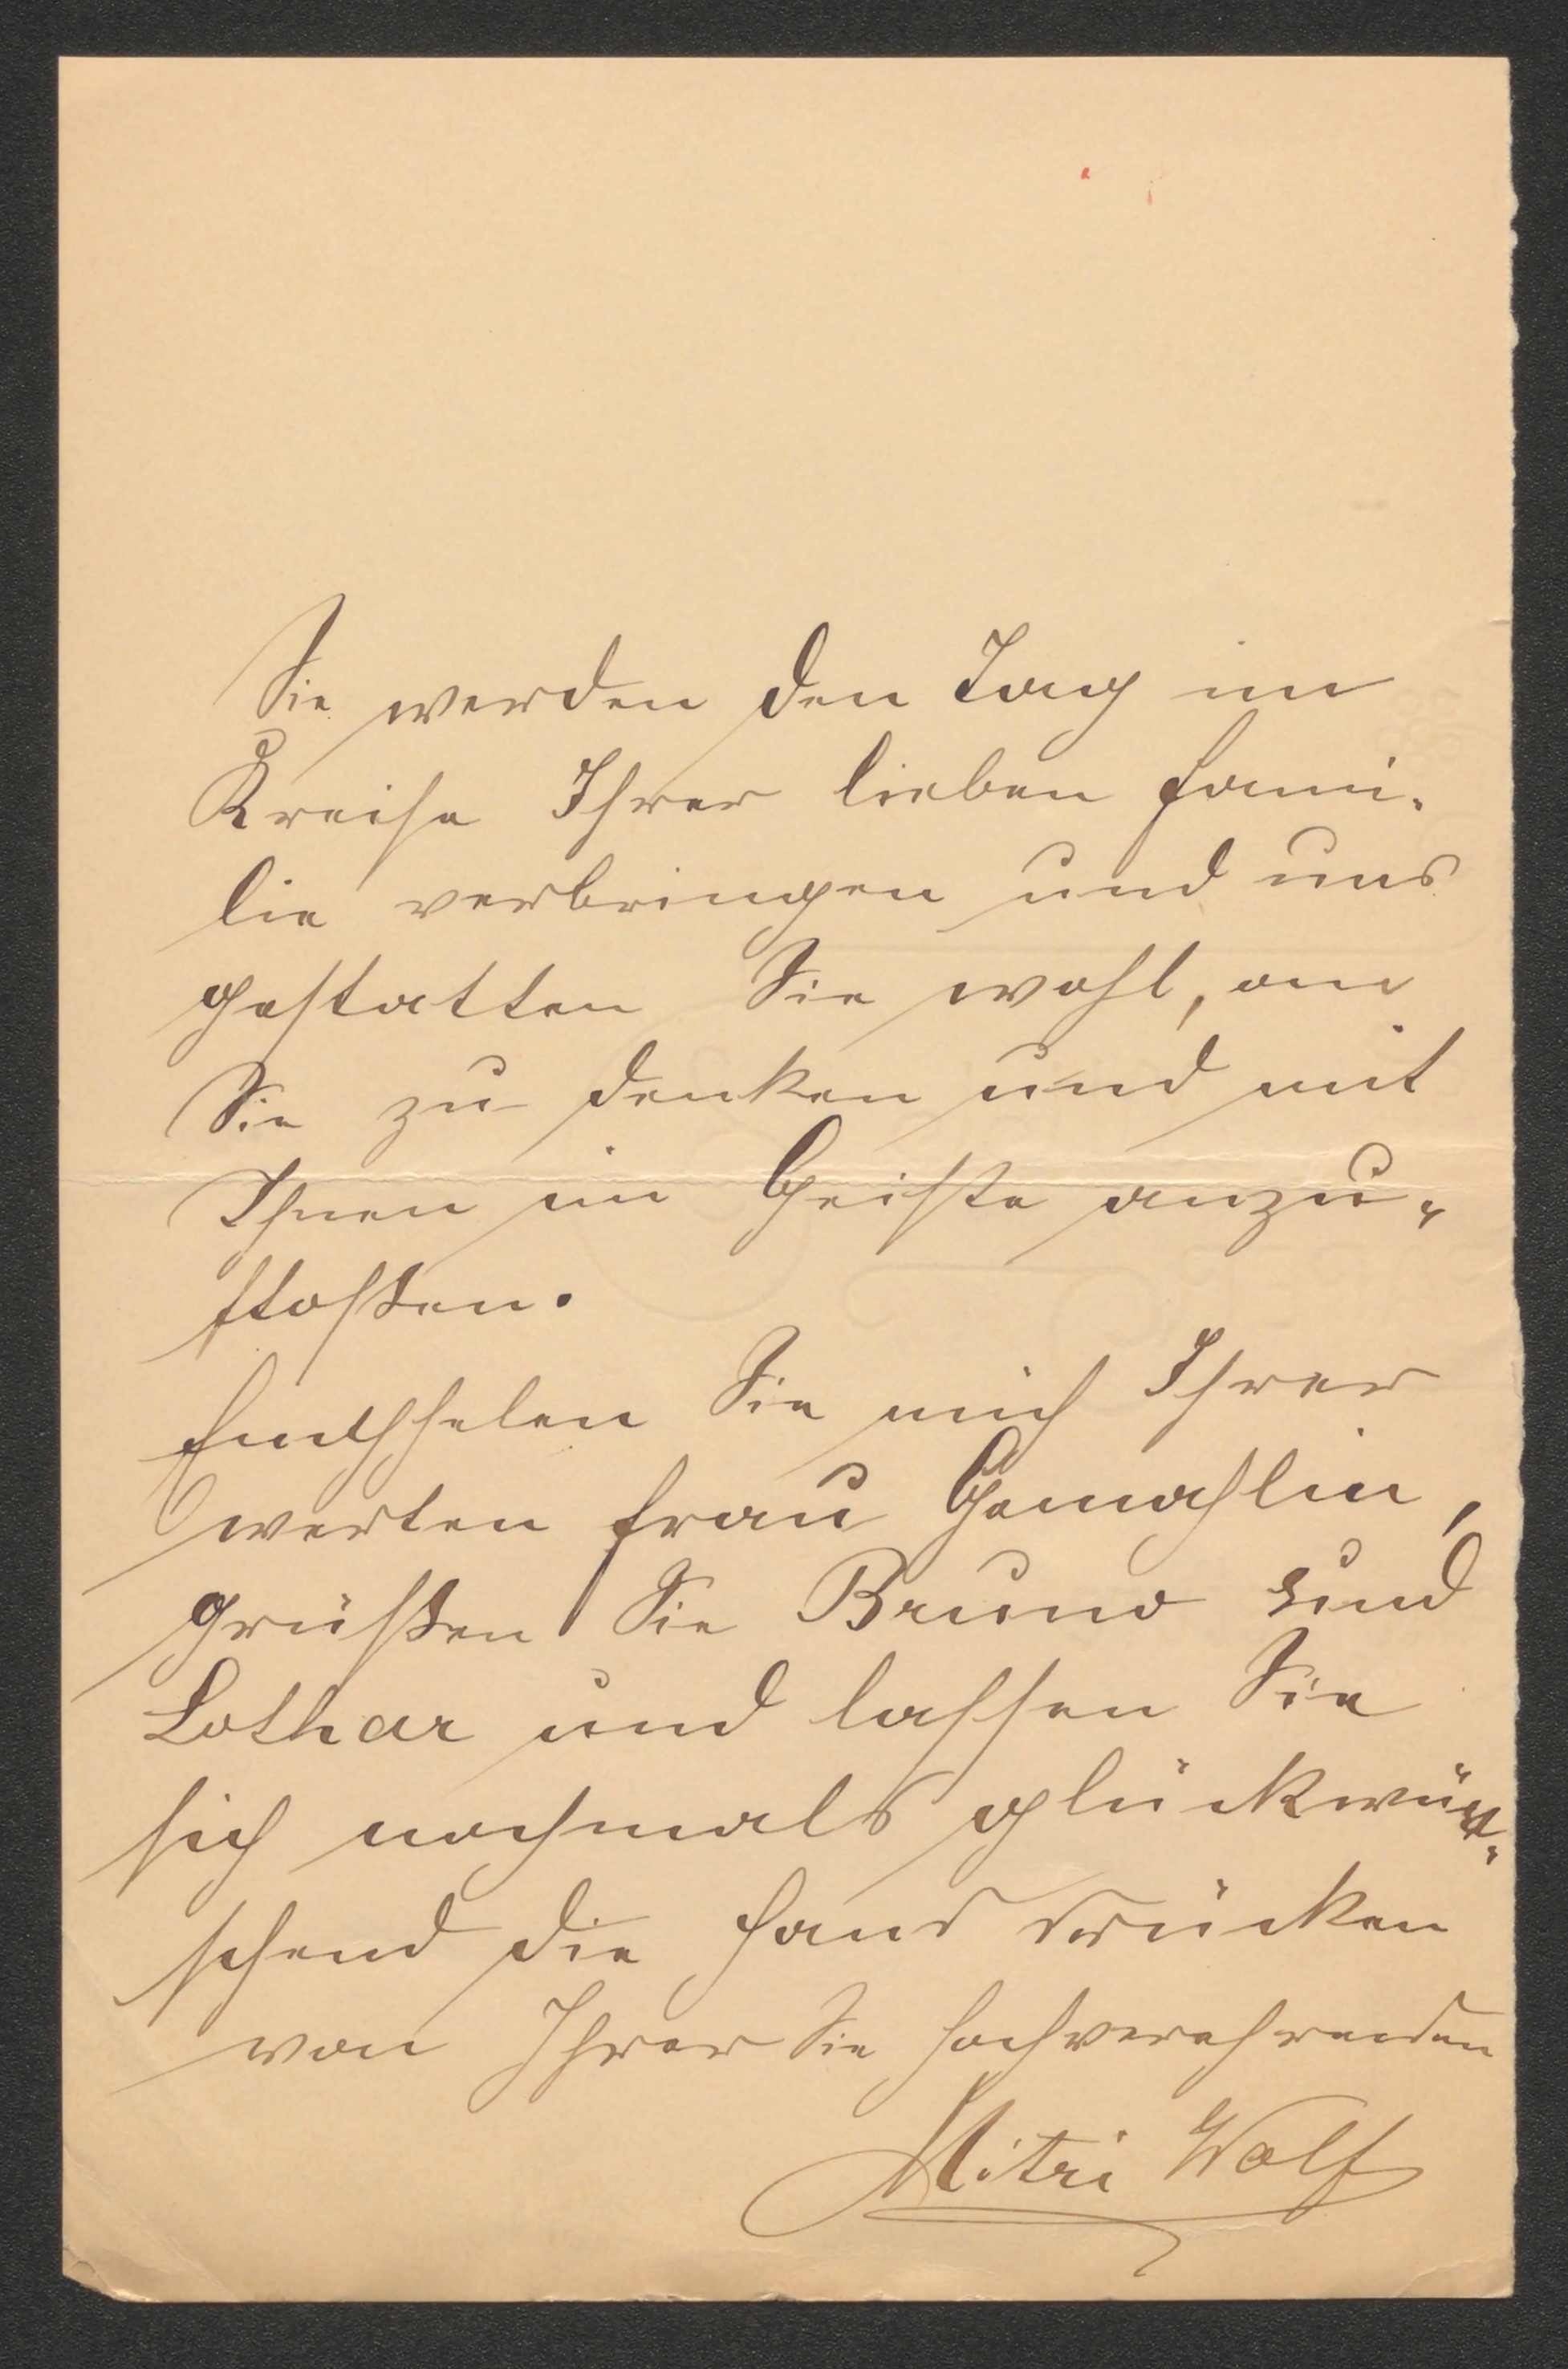 Sie werden den Tag im
Kreise Ihrer lieben Fami-
lie verbringen und uns
gestatten Sie wohl, an
Sie zu denken und mit
Ihnen im Geiste anzu-
stoßen.
Empfhelen Sie mich Ihrer
werten Frau Gemahlin,
grüßen Sie Bruno und
Lothar und lassen Sie
sich nochmals glückwün-
schend die Hand drücken
von Ihrer Sie hochverehrenden
Mitzi Wolf